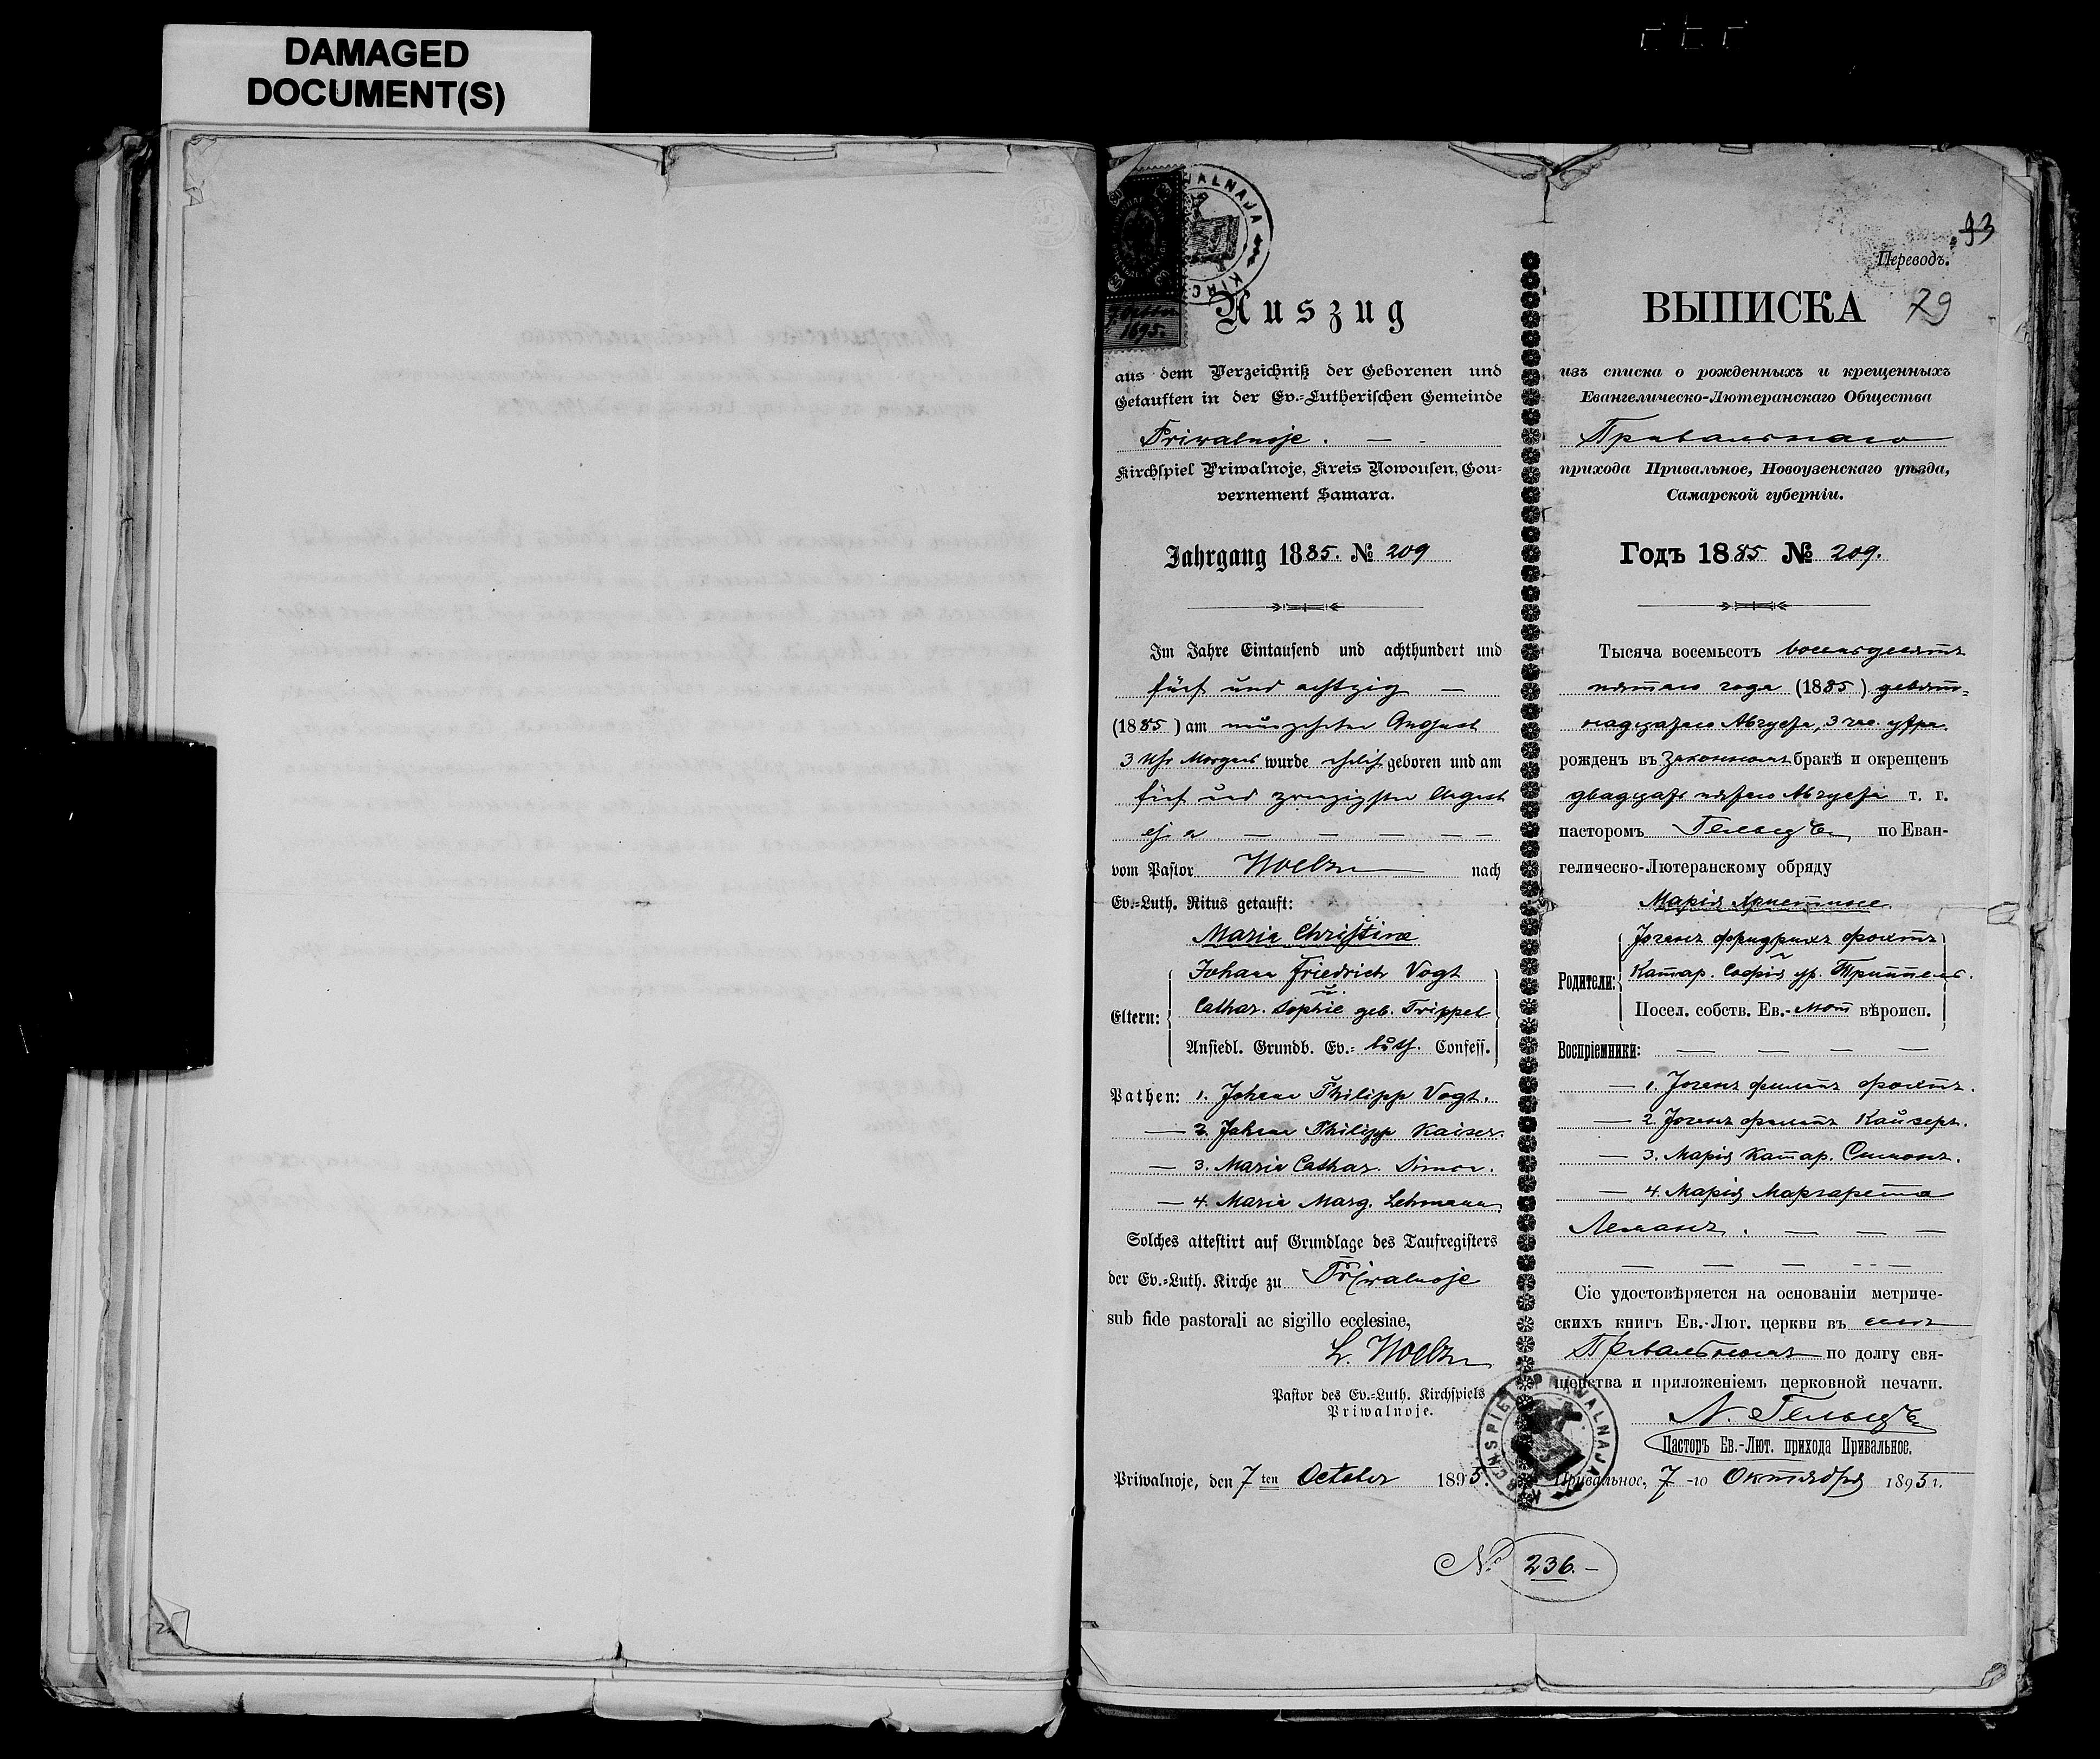 DAMAGED
DOCUMENT(S)
93
Переводъ.
Auszug
7 October
1895.
aus dem Verzeichniß der Geborenen und
Getauften in der Ev.-Lutherischen Gemeinde
Priwalnoje. — -
Kirchspiel Priwalnoje, Kreis Nowousen, Gou-
vernement Samara.
Jahrgang 1885. № 209
Im Jahre Eintausend und achthundert und
fünf und achtzig —
(1885) am neunzehnten August
3 Uhr Morgens wurde ehelich geboren und am
fünf und zwanzigsten August
ej. a — — — — —
vom Pastor Hoelzn nach
Ev.-Luth. Ritus getauft:
Maria Christine
Eltern:
Johann Friedrich Vogt
u.
Cathar. Sophie geb. Trippel
Ansiedl. Grundb. Ev.- luth. Confess.
Pathen: 1. Johann Philipp Vogt.
— 2. Johann Philipp Kaiser.
— 3. Maria Cathar. Simon.
— 4. Maria Marg. Lehmann
Solches attestirt auf Grundlage des Taufregisters
der Ev.-Luth. Kirche zu Priwalnoje
sub fide pastorali ac sigillo ecclesiae,
Pastor des Ev.-Luth. Kirchspiels
Priwalnoje.
Priwalnoje, den 7ten October 1895.
ВЫПИСКА 79
изъ списка о рожденныхъ и крещенныхъ
Евангелическо-Лютеранскаго Общества
Привальнаго
прихода Привальное, Новоузенскаго уѣзда,
Самарской губерніи.
Годъ 1885 № 209.
Тысяча восемьсотъ восемьдесятъ
пятаго года (1885) девят-
надцатаго Августа, 3 час. утра.
рожденъ въ законномъ бракѣ и окрещенъ
двадцать пятаго Августа т. г.
пасторомъ Гельцъ по Еван-
гелическо-Лютеранскому обряду
Марія Христине.
Родители:
Іоганъ Фридрихъ Фохтъ
Катар. Софія ур. Триппель.
Посел. собств. Ев.-Лют вѣроисп.
Воспріемники: — — — —
— 1. Іоганъ Филиппъ Фохтъ.
— 2. Іоганъ Филиппъ Кайзеръ.
— 3. Марія Катар. Симонъ.
— 4. Марія Маргарета
Леманъ. — — —
Сіе удостовѣряется на основаніи метриче-
скихъ книгъ Ев.-Лют. церкви въ селѣ
Привальномъ по долгу свя-
щенства и приложеніемъ церковной печати.
Пасторъ Ев.-Лют. прихода Привальное.
Привальное, 7-го Октября 1895 г.
KIRCHSPIEL PRIWALNAJA
№ 236.-